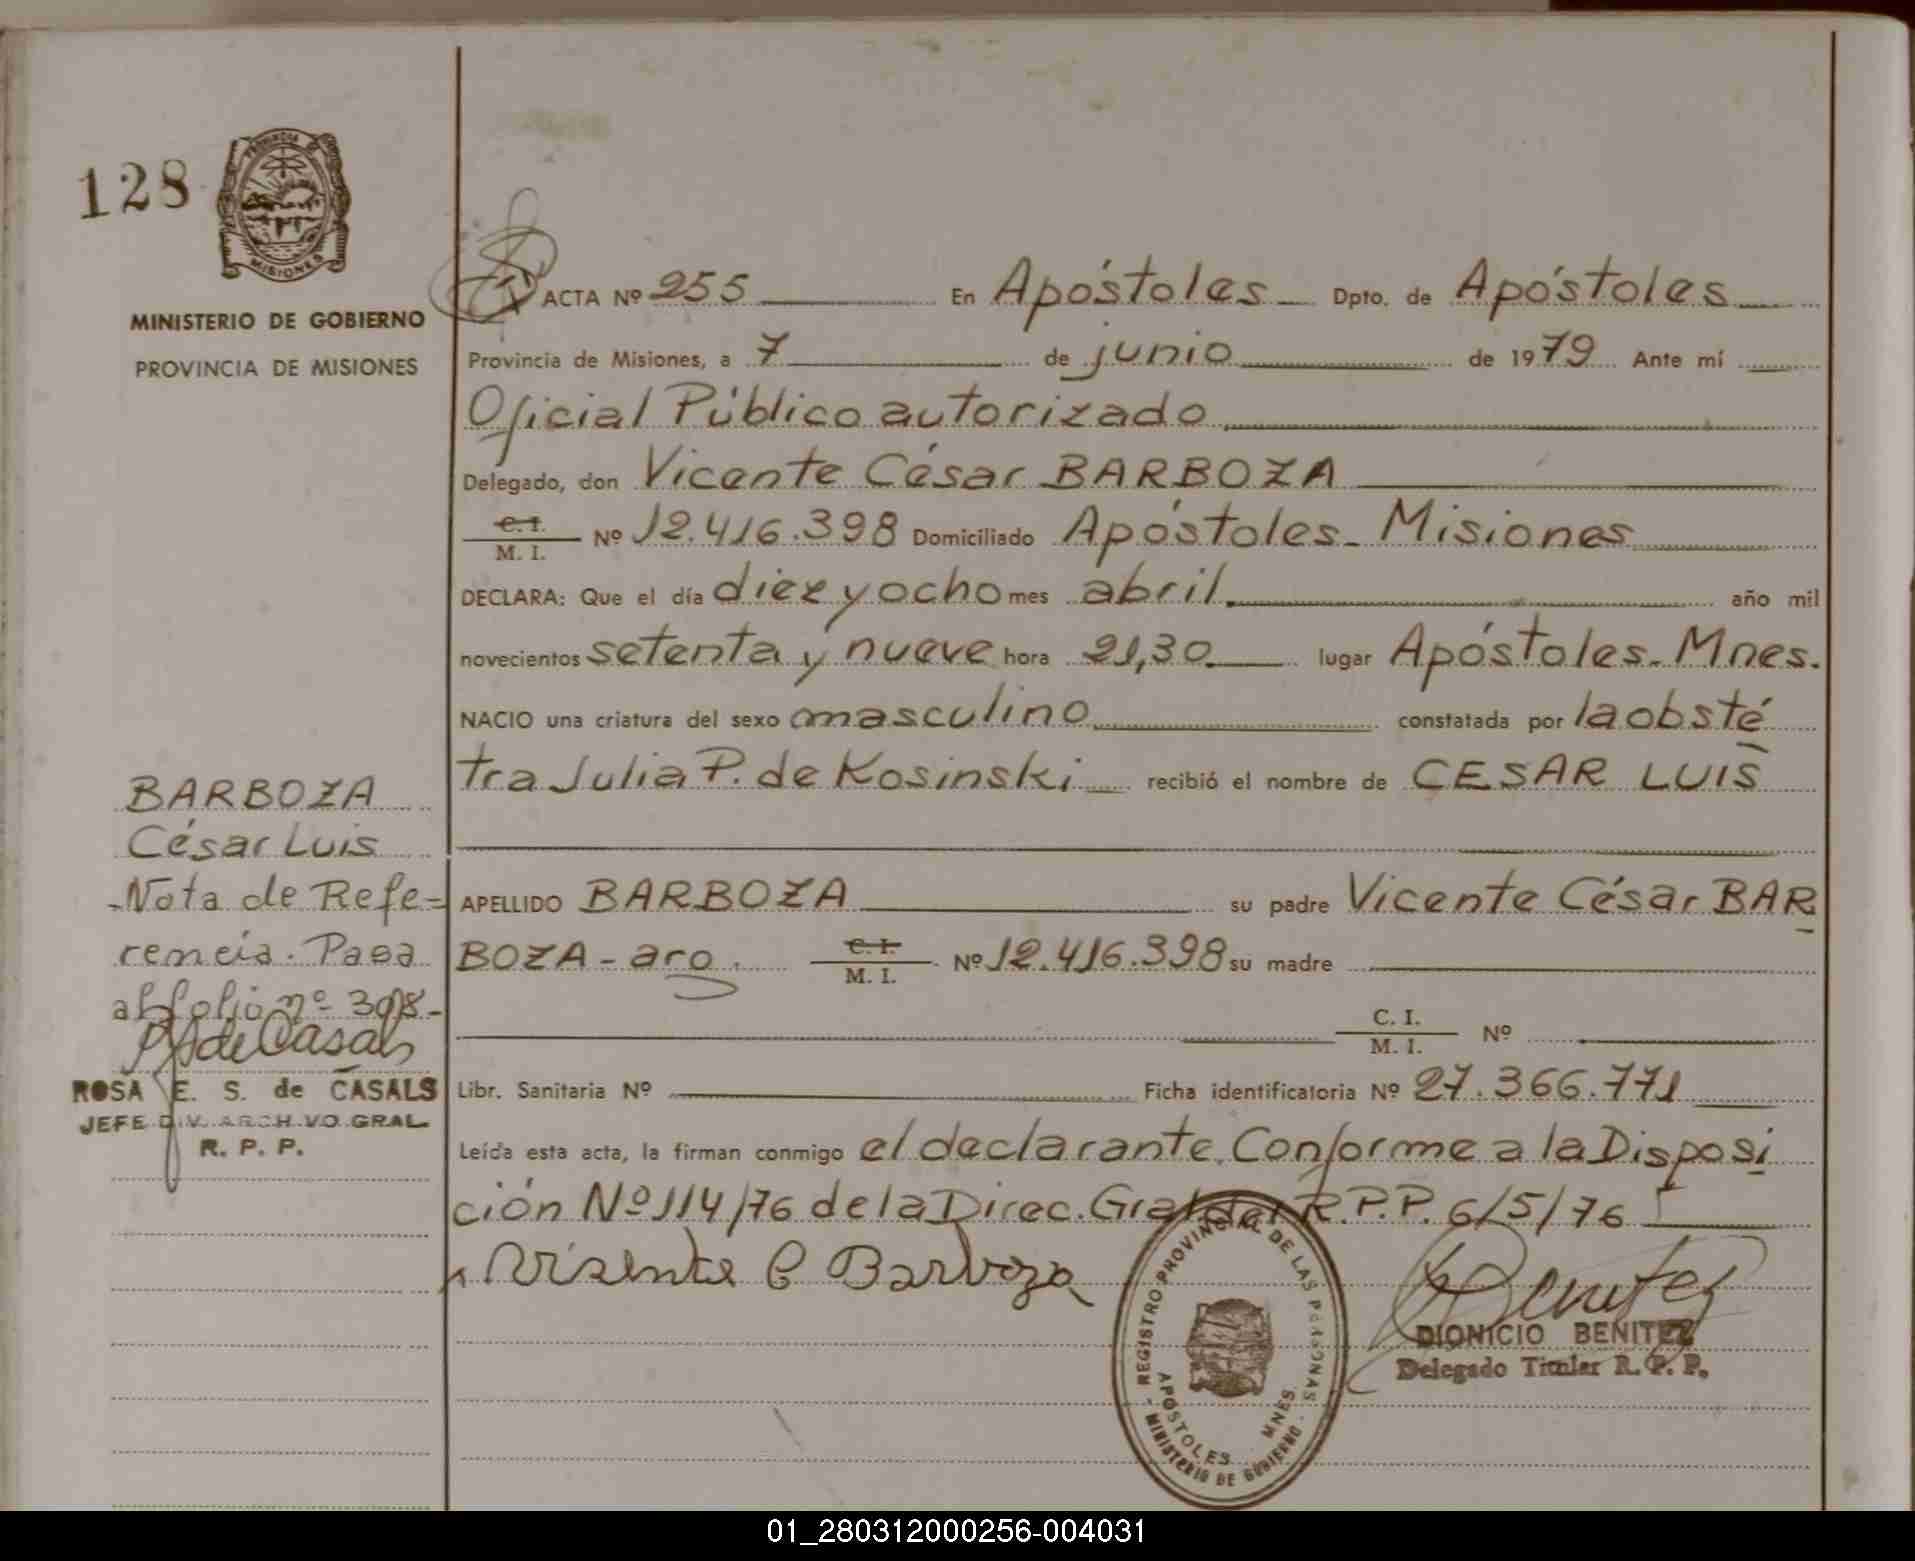 128
PROVINCIA DE
MISIONES
MINISTERIO DE GOBIERNO
PROVINCIA DE MISIONES
ACTA Nº 255 En Apóstoles Dpto. de Apóstoles
Provincia de Misiones, a 7 de junio de 1979 Ante mí
Oficial Público autorizado
Delegado, don Vicente César BARBOZA
C. I.
M. I. Nº 12.416.398 Domiciliado Apóstoles - Misiones
DECLARA: Que el día diez y ocho mes abril. año mil
novecientos setenta y nueve hora 21,30 lugar Apóstoles - Mnes.
NACIO una criatura del sexo masculino constatada por la obsté
tra Julia P. de Kosinski recibió el nombre de CESAR LUIS
APELLIDO BARBOZA su padre Vicente César BAR
BOZA - arg. C. I.
M. I. Nº 12.416.398 su madre
C. I.
M. I. Nº
Libr. Sanitaria Nº Ficha identificatoria Nº 27.366.771
Leída esta acta, la firman conmigo el declarante. Conforme a la Disposi
ción Nº 114/76 de la Direc. Gral del R.P.P. 6/5/76
Visente C Barboza
Benitez
DIONICIO BENITEZ
Delegado Titular R. P. P.
REGISTRO PROVINCIAL DE LAS PERSONAS
APOSTOLES MNES.
MINISTERIO DE GOBIERNO
BARBOZA
César Luis
- Nota de Refe-
rencia. Pasa
al folio nº 398.-
de Casals
ROSA E. S. de CASALS
JEFE DIV. ARCHIVO GRAL.
R. P. P.
01_280312000256-004031